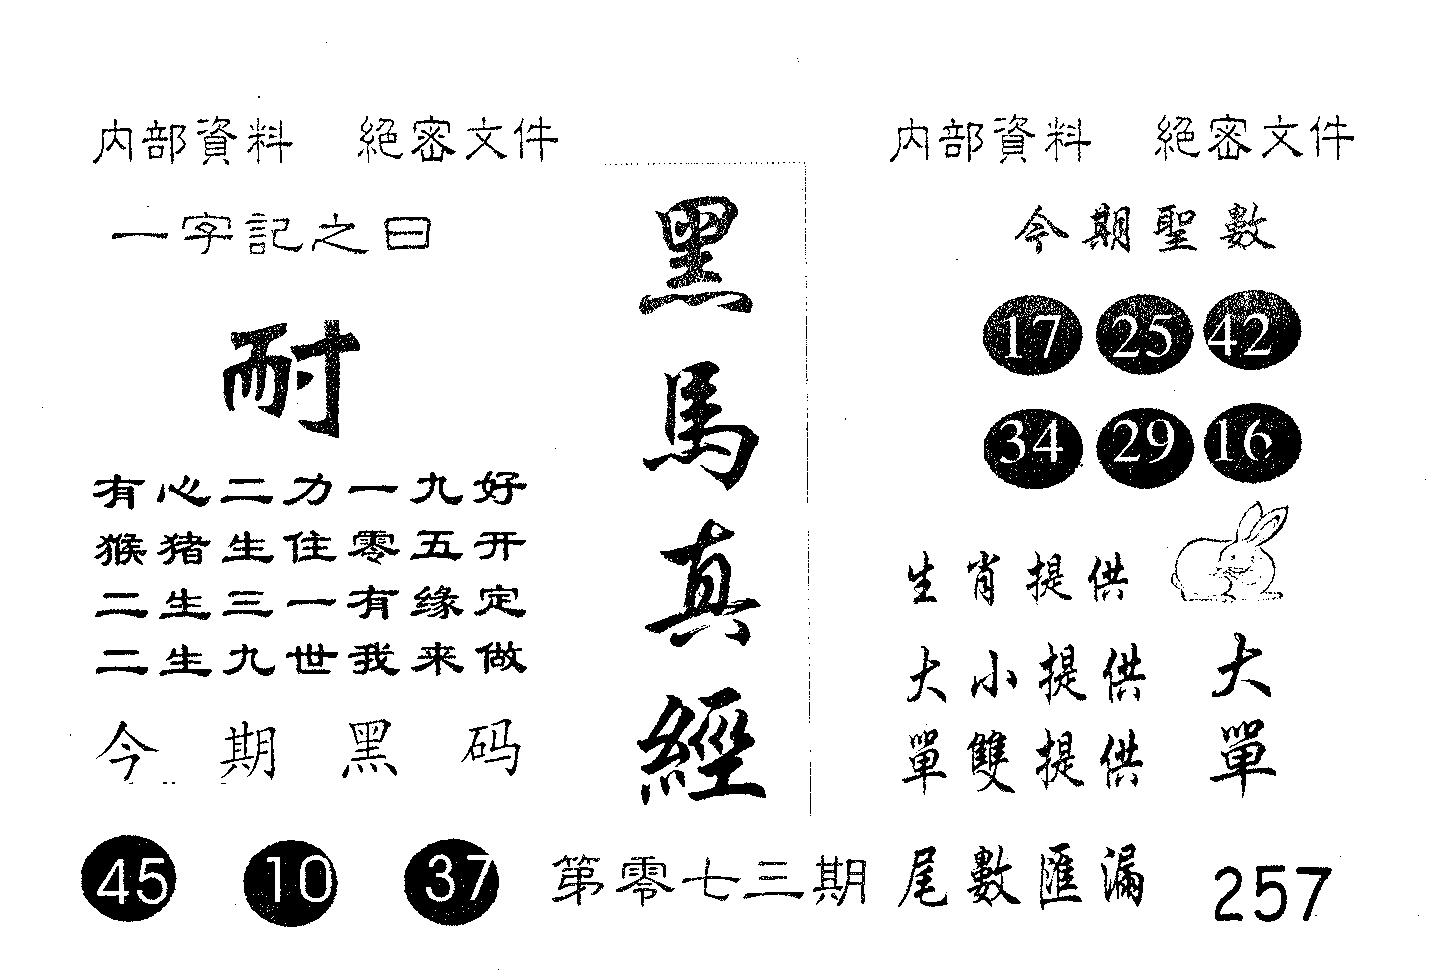 內部資料 絕密文件
一字記之曰
耐
有心二力一九好
猴猪生住零五开
二生三一有缘定
二生九世我来做
今期黑码
45 10 37
黑馬真經
第零七三期
內部資料 絕密文件
今期聖數
17 25 42
34 29 16
生肖提供
大小提供 大
單雙提供 單
尾數匯漏 257